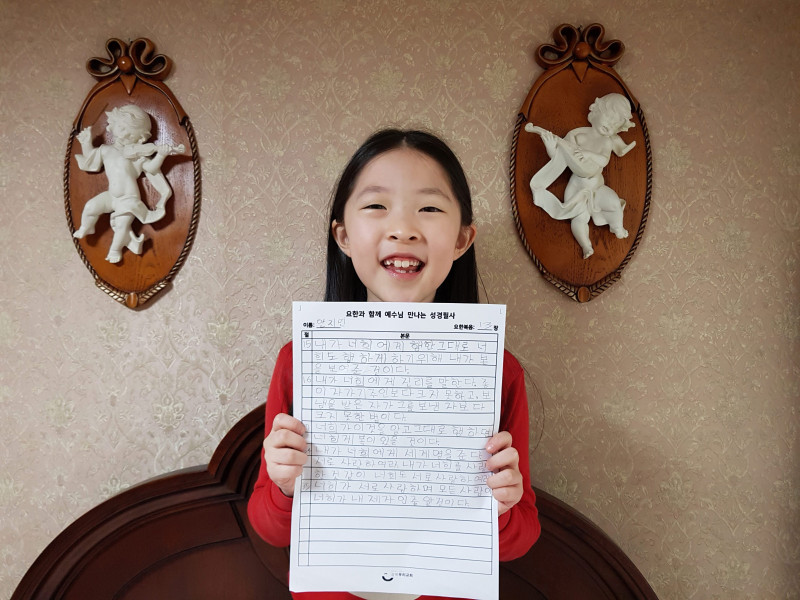 요한과 함께 예수님 만나는 성경필사
이름: 요한복음: 13 장
절 본문
15 내가 너희에게 행한그대로 너
희도 행하게 하기위해 내가 본
을 보여준 것이다.
16 내가 너희에게 진리를 말한다. 종
이 자기주인보다 크지 못하고, 보
냄을 받은 자가 그를 보낸 자보다
크지 못한 법이다.
너희가이것을 알고그대로 행하면
너희게 복이 있을 것이다.
내가 너희에게 새 계명을 준다
서로 사랑하여라 내가 너희를 사랑
한 것 같이 너희도 서로 사랑하여라
너희가 서로 사랑하며 모든사람이
너희가 내 제자 인줄 알것이다